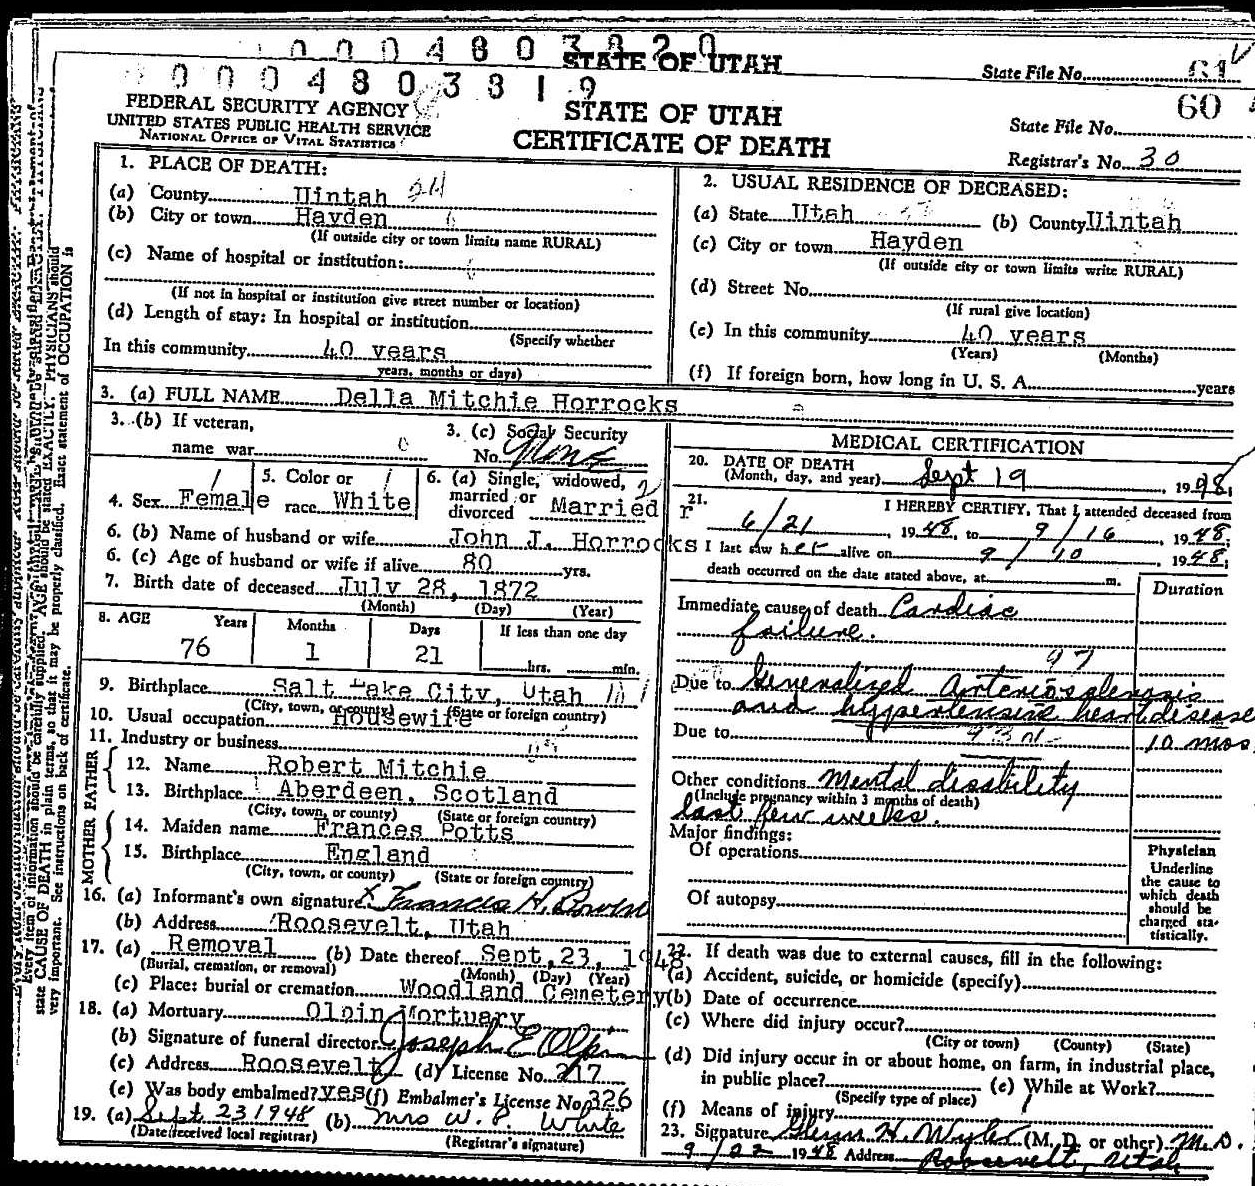 0004803820
STATE OF UTAH
State File No. 61
0004803819
60
FEDERAL SECURITY AGENCY
UNITED STATES PUBLIC HEALTH SERVICE
NATIONAL OFFICE OF VITAL STATISTICS
STATE OF UTAH
CERTIFICATE OF DEATH
State File No.
Registrar's No. 30
1. PLACE OF DEATH:
(a) County Uintah 24
(b) City or town Hayden
(If outside city or town limits name RURAL)
(c) Name of hospital or institution:
(If not in hospital or institution give street number or location)
(d) Length of stay: In hospital or institution
(Specify whether
In this community 40 years
years, months or days)
2. USUAL RESIDENCE OF DECEASED:
(a) State Utah (b) County Uintah
(c) City or town Hayden
(If outside city or town limits write RURAL)
(d) Street No.
(If rural give location)
(e) In this community 40 years
(Years) (Months)
(f) If foreign born, how long in U. S. A. years
3. (a) FULL NAME Della Mitchie Horrocks
3. (b) If veteran,
name war
3. (c) Social Security
No. None
4. Sex Female
5. Color or
race White
6. (a) Single, widowed, 2
married or
divorced Married
6. (b) Name of husband or wife John J. Horrocks
6. (c) Age of husband or wife if alive 80 yrs.
7. Birth date of deceased July 28, 1872
(Month) (Day) (Year)
8. AGE Years Months Days If less than one day
76 1 21 hrs. min.
9. Birthplace Salt Lake City, Utah
(City, town, or county) (State or foreign country)
10. Usual occupation Housewife
11. Industry or business
FATHER
12. Name Robert Mitchie
13. Birthplace Aberdeen, Scotland
(City, town, or county) (State or foreign country)
MOTHER
14. Maiden name Frances Potts
15. Birthplace England
(City, town, or county) (State or foreign country)
16. (a) Informant's own signature x Frances H.
(b) Address Roosevelt, Utah
17. (a) Removal (b) Date thereof Sept, 23, 1948
(Burial, cremation, or removal) (Month) (Day) (Year)
(c) Place: burial or cremation Woodland Cemetery
18. (a) Mortuary Olpin Mortuary
(b) Signature of funeral director Joseph E Olpin
(c) Address Roosevelt (d) License No. 217
(e) Was body embalmed? yes (f) Embalmer's License No. 326
19. (a) Sept 23 1948 (b) Mrs W. P. White
(Date received local registrar) (Registrar's signature)
MEDICAL CERTIFICATION
20. DATE OF DEATH
(Month, day, and year) Sept 19, 1948;
21. I HEREBY CERTIFY, That I attended deceased from
r 6/21, 1948, to 9/16, 1948;
I last saw her alive on 9/10, 1948;
death occurred on the date stated above, at m.
Duration
Immediate cause of death Cardiac
failure.
97
Due to Generalized Arteriosclerosis
and hypertensive heart disease
Due to 93d 10 mos.
Other conditions Mental disability
(Include pregnancy within 3 months of death)
last few weeks.
Major findings:
Of operations
Of autopsy
Physician
Underline
the cause to
which death
should be
charged sta-
tistically.
22. If death was due to external causes, fill in the following:
(a) Accident, suicide, or homicide (specify)
(b) Date of occurrence
(c) Where did injury occur?
(City or town) (County) (State)
(d) Did injury occur in or about home, on farm, in industrial place,
in public place? (e) While at Work?
(Specify type of place)
(f) Means of injury
23. Signature Glenn H. (M. D. or other) M.D.
9/22 1948 Address Roosevelt, Utah
state CAUSE OF DEATH in plain terms, so that it may be properly classified. Exact statement of OCCUPATION is
very important. See instructions on back of certificate.